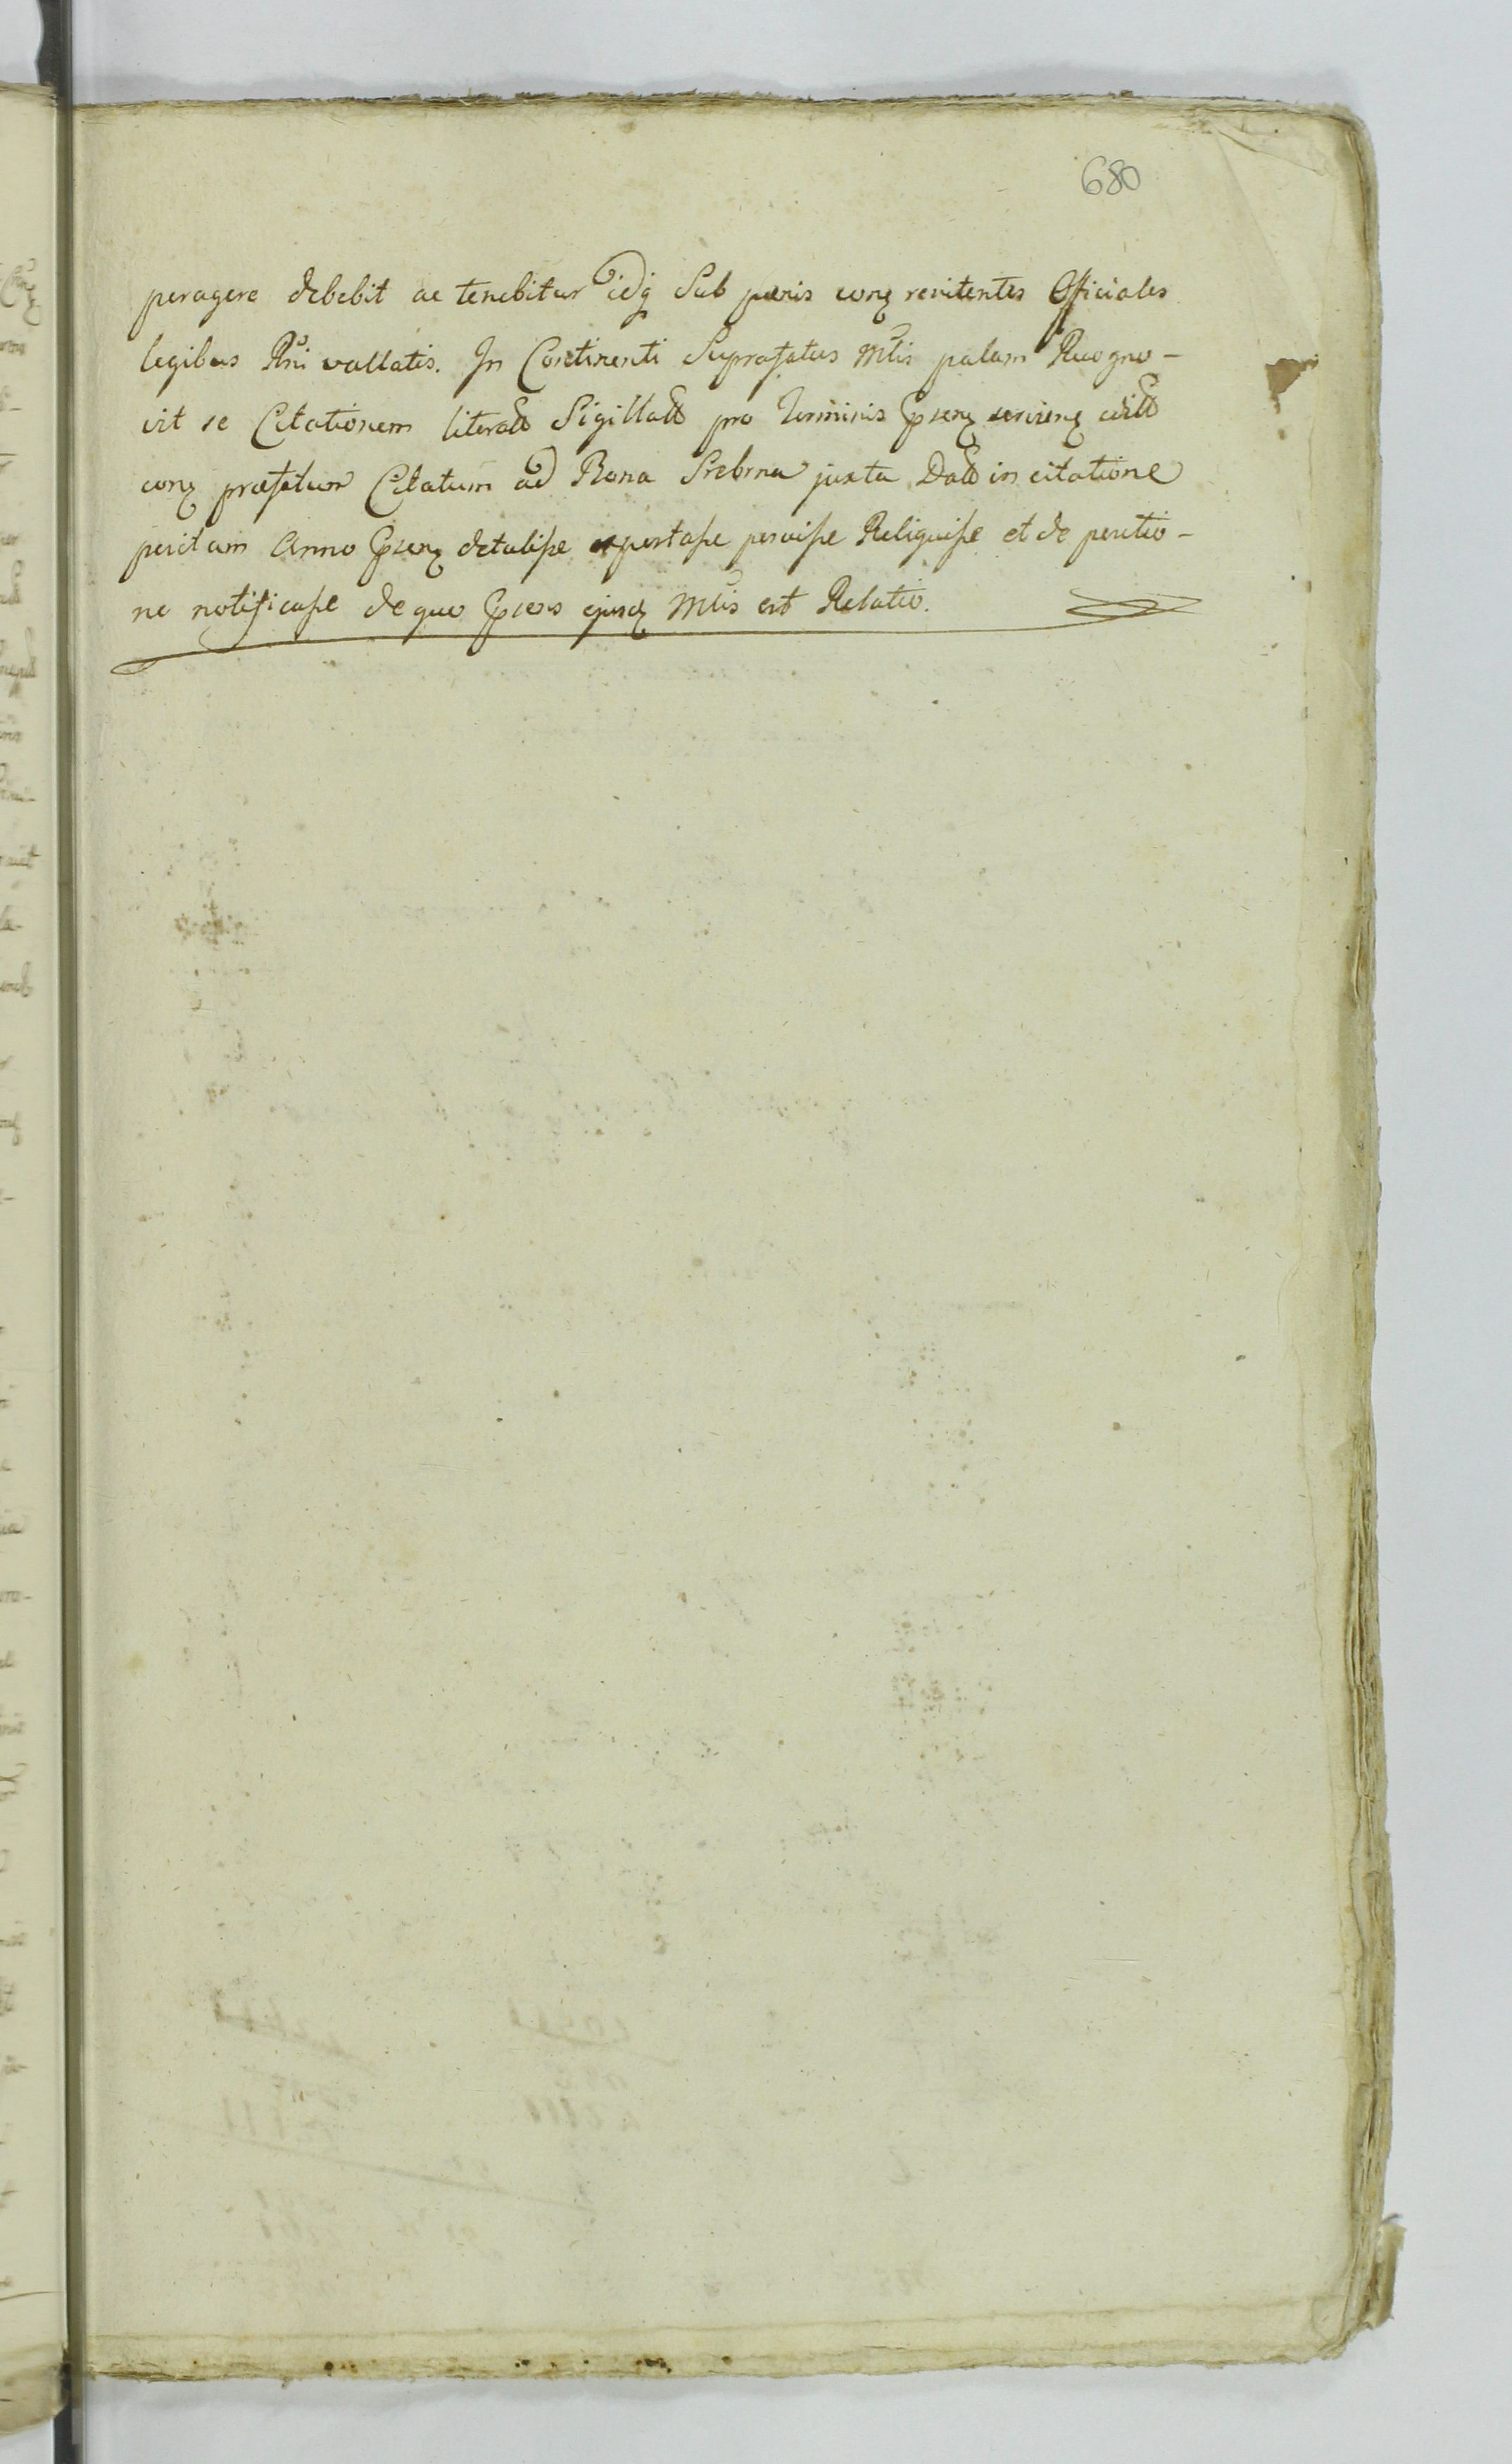 680
peragere debebit ac tenebitur idq sub pœnis conq renitentes Officiales
legibus Rni vallatis. In Continenti Suprafatus Mtis palam Recogno-
vit se Citationem literall Sigillatt pro Terminis pnsenq servienq edill
conq præfatum Citatum ad Bona Srebrna juxta Datt in citatione
peritam Anno pnsenq detulisse portasse posuisse Reliquisse et de positio-
ne notificasse de quo pnsens ejusq Mtis est Relatio.